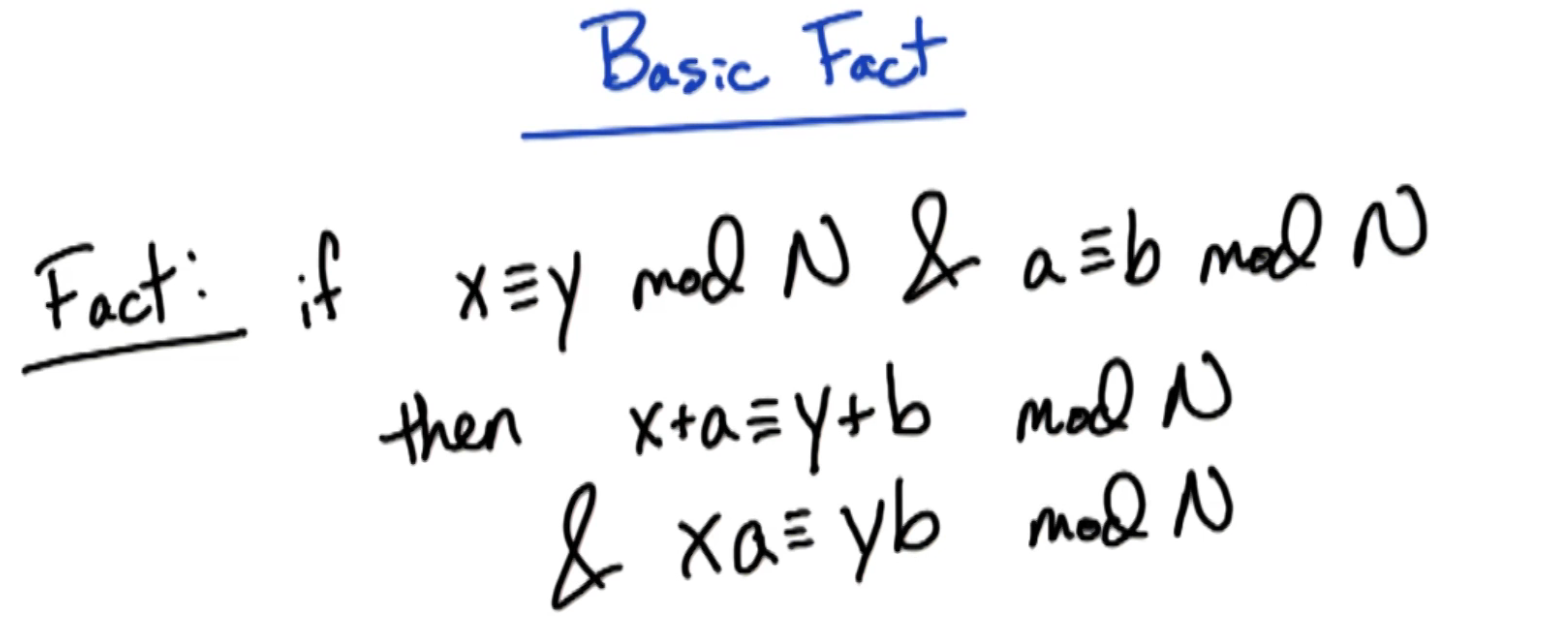 Basic Fact
Fact: if x≡y mod N & a≡b mod N
then x+a≡y+b mod N
& xa≡yb mod N